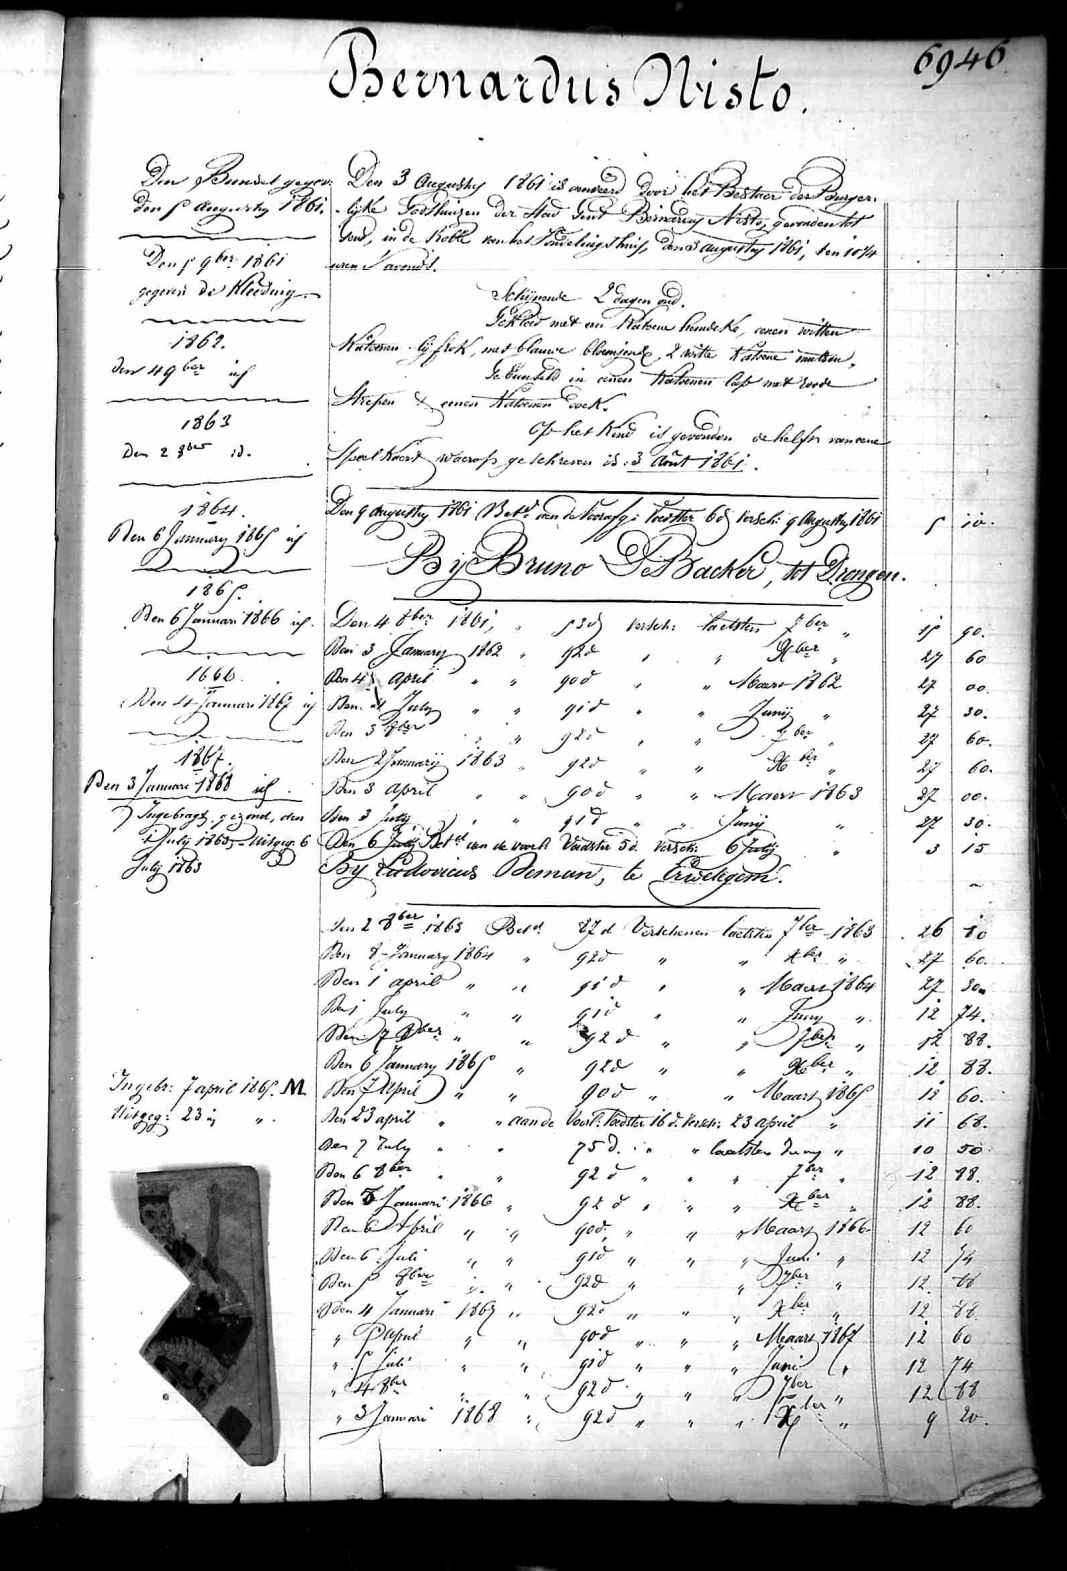 6946
Bernardus Nisto.
Den Bundel gegev:
den 5 Augusty 1861.
Den 5 9ber 1861
gegeven de Kleeding.
1862.
den 4 9ber id
1863
Den 2 8ber id.
1864.
Den 6 January 1865 id
1865.
Den 6 Januari 1866 id.
1866.
Den 4 Januari 1867 id
1867.
Den 3 Januari 1868 id.
Ingebragt gezond, den
1 July 1863, Uitgeg: 6
July 1863
Ingebr: 7 april 1865. M.
Uitgeg: 23 " ".
Den 3 Augusty 1861 is aenveerd door het Bestuer der Burger-
-lijke Godshuizen der Stad Gent Bernardus Nisto, gevonden tot
Gend, in de Rolle van het Vondelingshuis, den 3 augusty 1861, ten 10 3/4
uren s'avonds.
Schijnende 2 dagen oud.
Gekleed met een Katoene hemdeke, eenen witten
Katoenen lijfrok, met blauwe bloemjens, 2 witte Katoene mutsen,
Gebundeld in eenen Katoenen lap met roode
Strepen & eenen Katoenen doek.
Op het Kind is gevonden de helft van eene
Speel Kaert waerop geschreven is: 3 Août 1861.
Den 9 augusty 1861 Betd aen de voorsg: voedster 6 d versch: 9 Augusty 1861 5 10.
By Bruno De Backer, tot Drongen.
Den 4 8ber 1861, " 53 d versch: laetsten 7ber " 15 90.
Den 3 January 1862 " 92 d " " Xber " 27 60
Den 4 April " " 90 d " " Maart 1862 27 00.
Den 4 July " " 91 d " " Junij " 27 30.
Den 3 8ber " " 92 d " " 7ber " 27 60.
Den 2 Januarij 1863 " 92 d " " Xber " 27 60.
Den 3 April " " 90 d " " Maert 1863 27 00.
Den 3 July " " 91 d " " Junij " 27 30.
Den 6 July Betd aen de voorsg Voedster 5 d. versch: 6 July " 3 15
By Ludovicus Deman, te Erwetegem.
Den 2 8ber 1863 Betd. 87 d Verschenen laetsten 7ber 1863 26 10
Den 8 January 1864 " 92 d " " Xber " 27 60.
Den 1 april " " 91 d " " Maert 1864 27 30.
Den 1 July " " 91 d " " Juny " 12 74.
Den 7 8ber " " 92 d " " 7ber " 12 88.
Den 6 January 1865 " 92 d " " Xber " 12 88.
Den 7 April " " 90 d " " Maart 1865 12 60.
Den 23 april " " aan de Voorsr: voedster 16 d. versch: 23 april " 11 68.
Den 7 July " " 75 d. " " laatsten Juny " 10 50
Den 6 8ber " " 92 d " " 7ber " 12 88.
Den 5 Januari 1866 " 92 d " " Xber " 12 88.
Den 6 April " " 90 d " " Maart 1866 12 60
Den 6 Juli " " 91 d " " Juni " 12 74
Den 5 8ber " " 92 d " " 7ber " 12 88
Den 4 Januari 1867 " 92 d " " Xber " 12 88.
" 5 April " " 90 d " " Maart 1867 12 60
" 5 Juli " " 91 d " " Juni " 12 74
" 4 8ber " " 92 d " " 7ber " 12 88
" 3 Januari 1868 " 92 d " " Xber " 9 20.